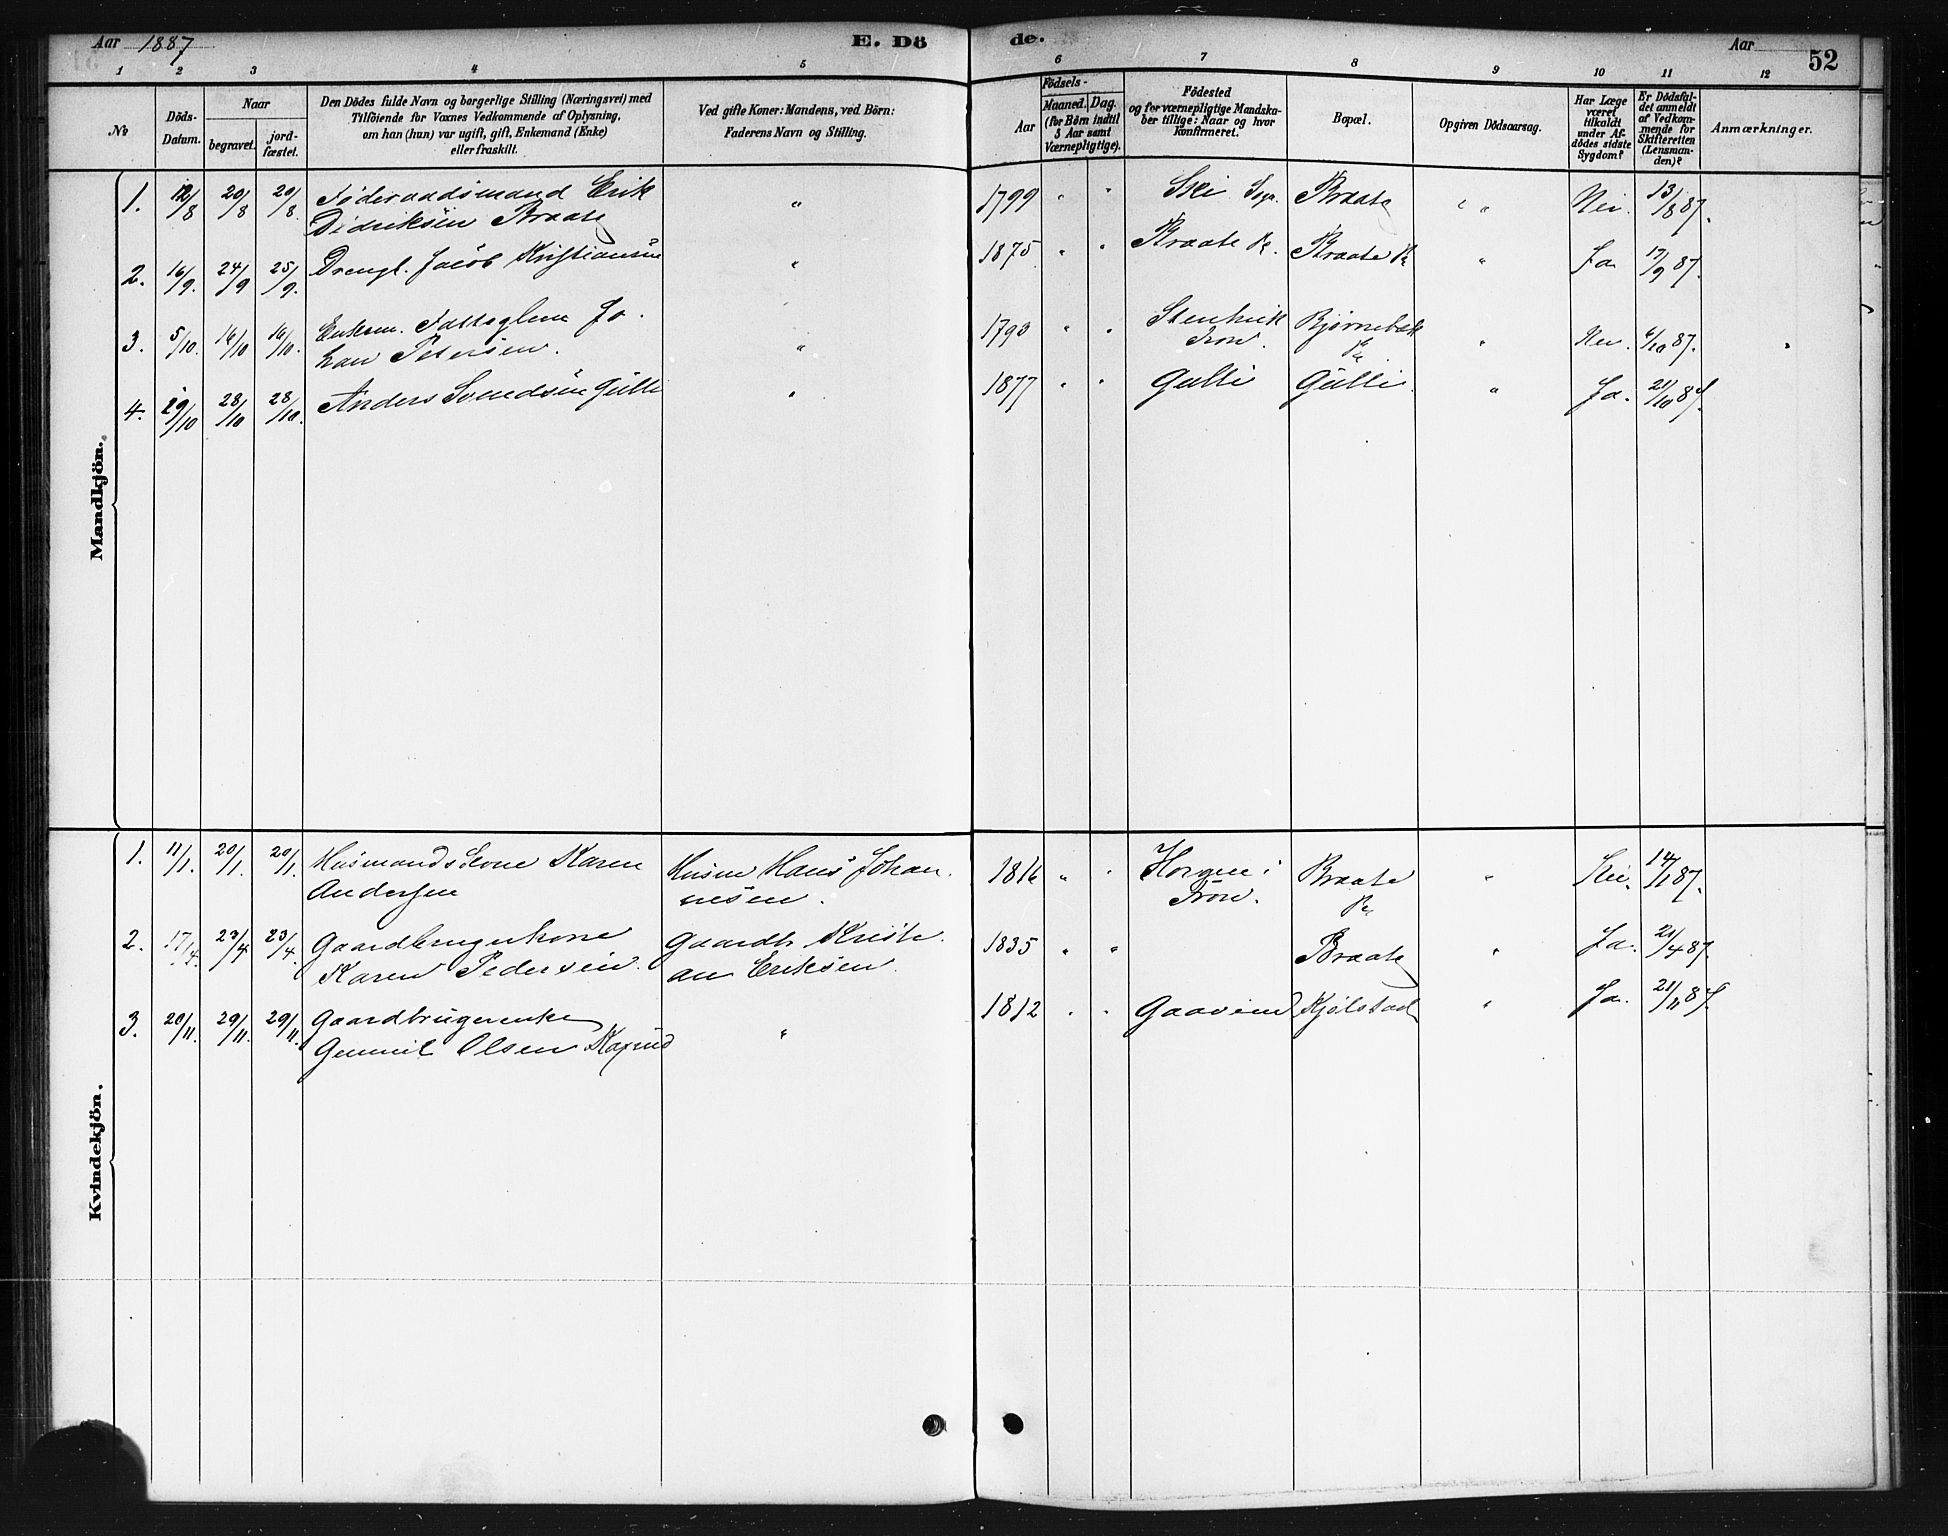 Aar 1887
E. Dö
de.
Aar
52
1 2 3 4 5 6 7 8 9 10 11 12
No
Döds-
Datum.
Naar
begravet.
jord-
fæstet.
Den Dödes fulde Navn og borgerlige Stilling (Næringsvei) med
Tilföiende for Voxnes Vedkommende af Oplysning,
om han (hun) var ugift, gift, Enkemand (Enke)
eller fraskilt.
Ved gifte Koner: Mandens, ved Börn:
Faderens Navn og Stilling.
Födsels-
Aar
Maaned. Dag.
(for Börn indtil
5 Aar samt
Værnepligtige).
Födested
og for værnepligtige Mandska-
ber tillige: Naar og hvor
Konfirmeret.
Bopæl.
Opgiven Dödsaarsag.
Har Læge
været
tilkaldt
under Af-
dödes sidste
Sygdom?
Er Dödsfal-
det anmeldt
af Vedkom-
mende for
Skifteretten
(Lensman-
den)?
Anmærkninger.
Mandkjön.
1. 12/8 20/8 20/8. Föderaadsmand Erik " 1799 " " Ski Sogn Braate " " Nei. 13/8 87.
Didriksen Braate
2. 16/9. 24/9 25/9. Drengl. Jacob Kristiansen " 1875 " " Braate Braate " Ja 17/9 87.
3. 5/10. 14/10 Enkem. Johan Petersen. " 1793 " " Tron. Bjørnebæk " Nei. 6/10 87. "
4. 19/10 28/10 28/10. Anders Svendsen Gulli " 1877 " " Gulli Gulli. " Ja. 21/10 87.
Kvindekjön.
1. 11/1. 20/1. 20/1. Husmandskone Karen Husm Hans Johan 1816 " " i Braate " Nei. 14/1 87.
Andersen nesen. Tron.
2. 17/4. 23/4 23/4. Gaardbrugerkone Gaardb Kristi 1835 " " Braate " Ja. 21/4 87.
Karen Pedersen. an Eriksen.
3. 20/11. 29/11. 29/11. Gaardbrugerenke " 1812 " " Kjølstad " Ja. 21/11 87.
Gunnil Olsen